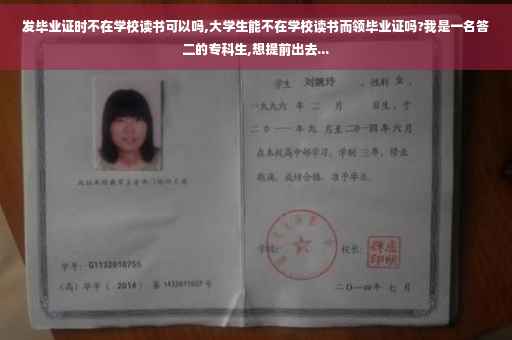 发毕业证时不在学校读书可以吗,大学生能不在学校读书而领毕业证吗?我是一名答
二的专科生,想提前出去...
学生 刘婉玲 ,性别 女 ,
一九九六 年 二 月 日生,于
二〇一一年九 月至二〇一四年六月
在本校高中部学习,学制 三年,修业
期满,成绩合格,准予毕业。
学校: 校长:
学号: G1132010755
(高)毕字( 2014 )第 1432011027 号
二〇一四年 七 月